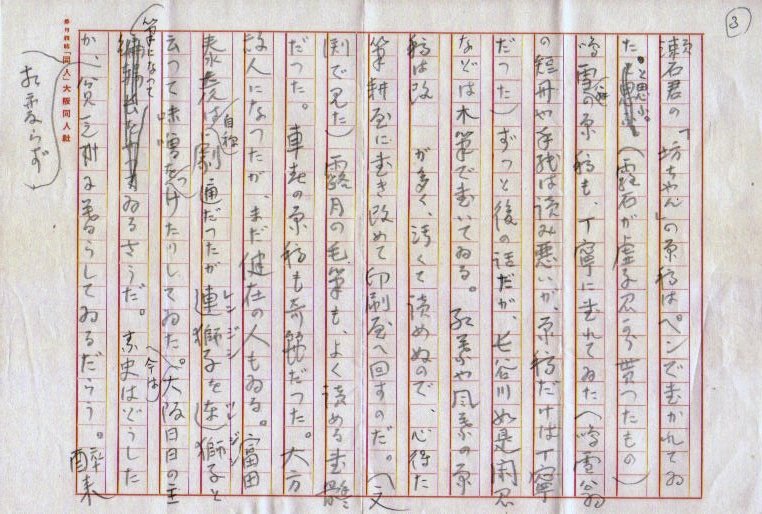 3
漱石君の「坊ちやん」の原稿はペンで書かれてゐ
たと思ふ。(霽石が虚子君から貰つたもの)
鳴雪の原稿も、丁寧に書れてゐた(鳴雪翁
の短冊や手紙は読み悪いが、原稿だけは丁寧
だつた)ずつと後の話だが、長谷川如是閑君
などは木筆で書いてゐる。紅葉や風葉の原
稿は改 が多く、汚くて読めぬので、心得た
筆耕屋に書き改めて印刷屋へ回すのだ。(文
関で見た)露月の毛筆も、よく読める書體
だつた。車春の原稿も奇麗だつた。大方
故人になつたが、まだ健在の人もゐる。富田
春彦は自称劇通だつたが連獅子を連獅子と
レンジシ
云つて味噌をつけたりしてゐた。(大阪日日の主
筆となつて
ゐるさうだ。素史は今はどうした
か、貧乏村に暮らしてゐるだらう。酔来
相変らず
「同人」大阪同人社